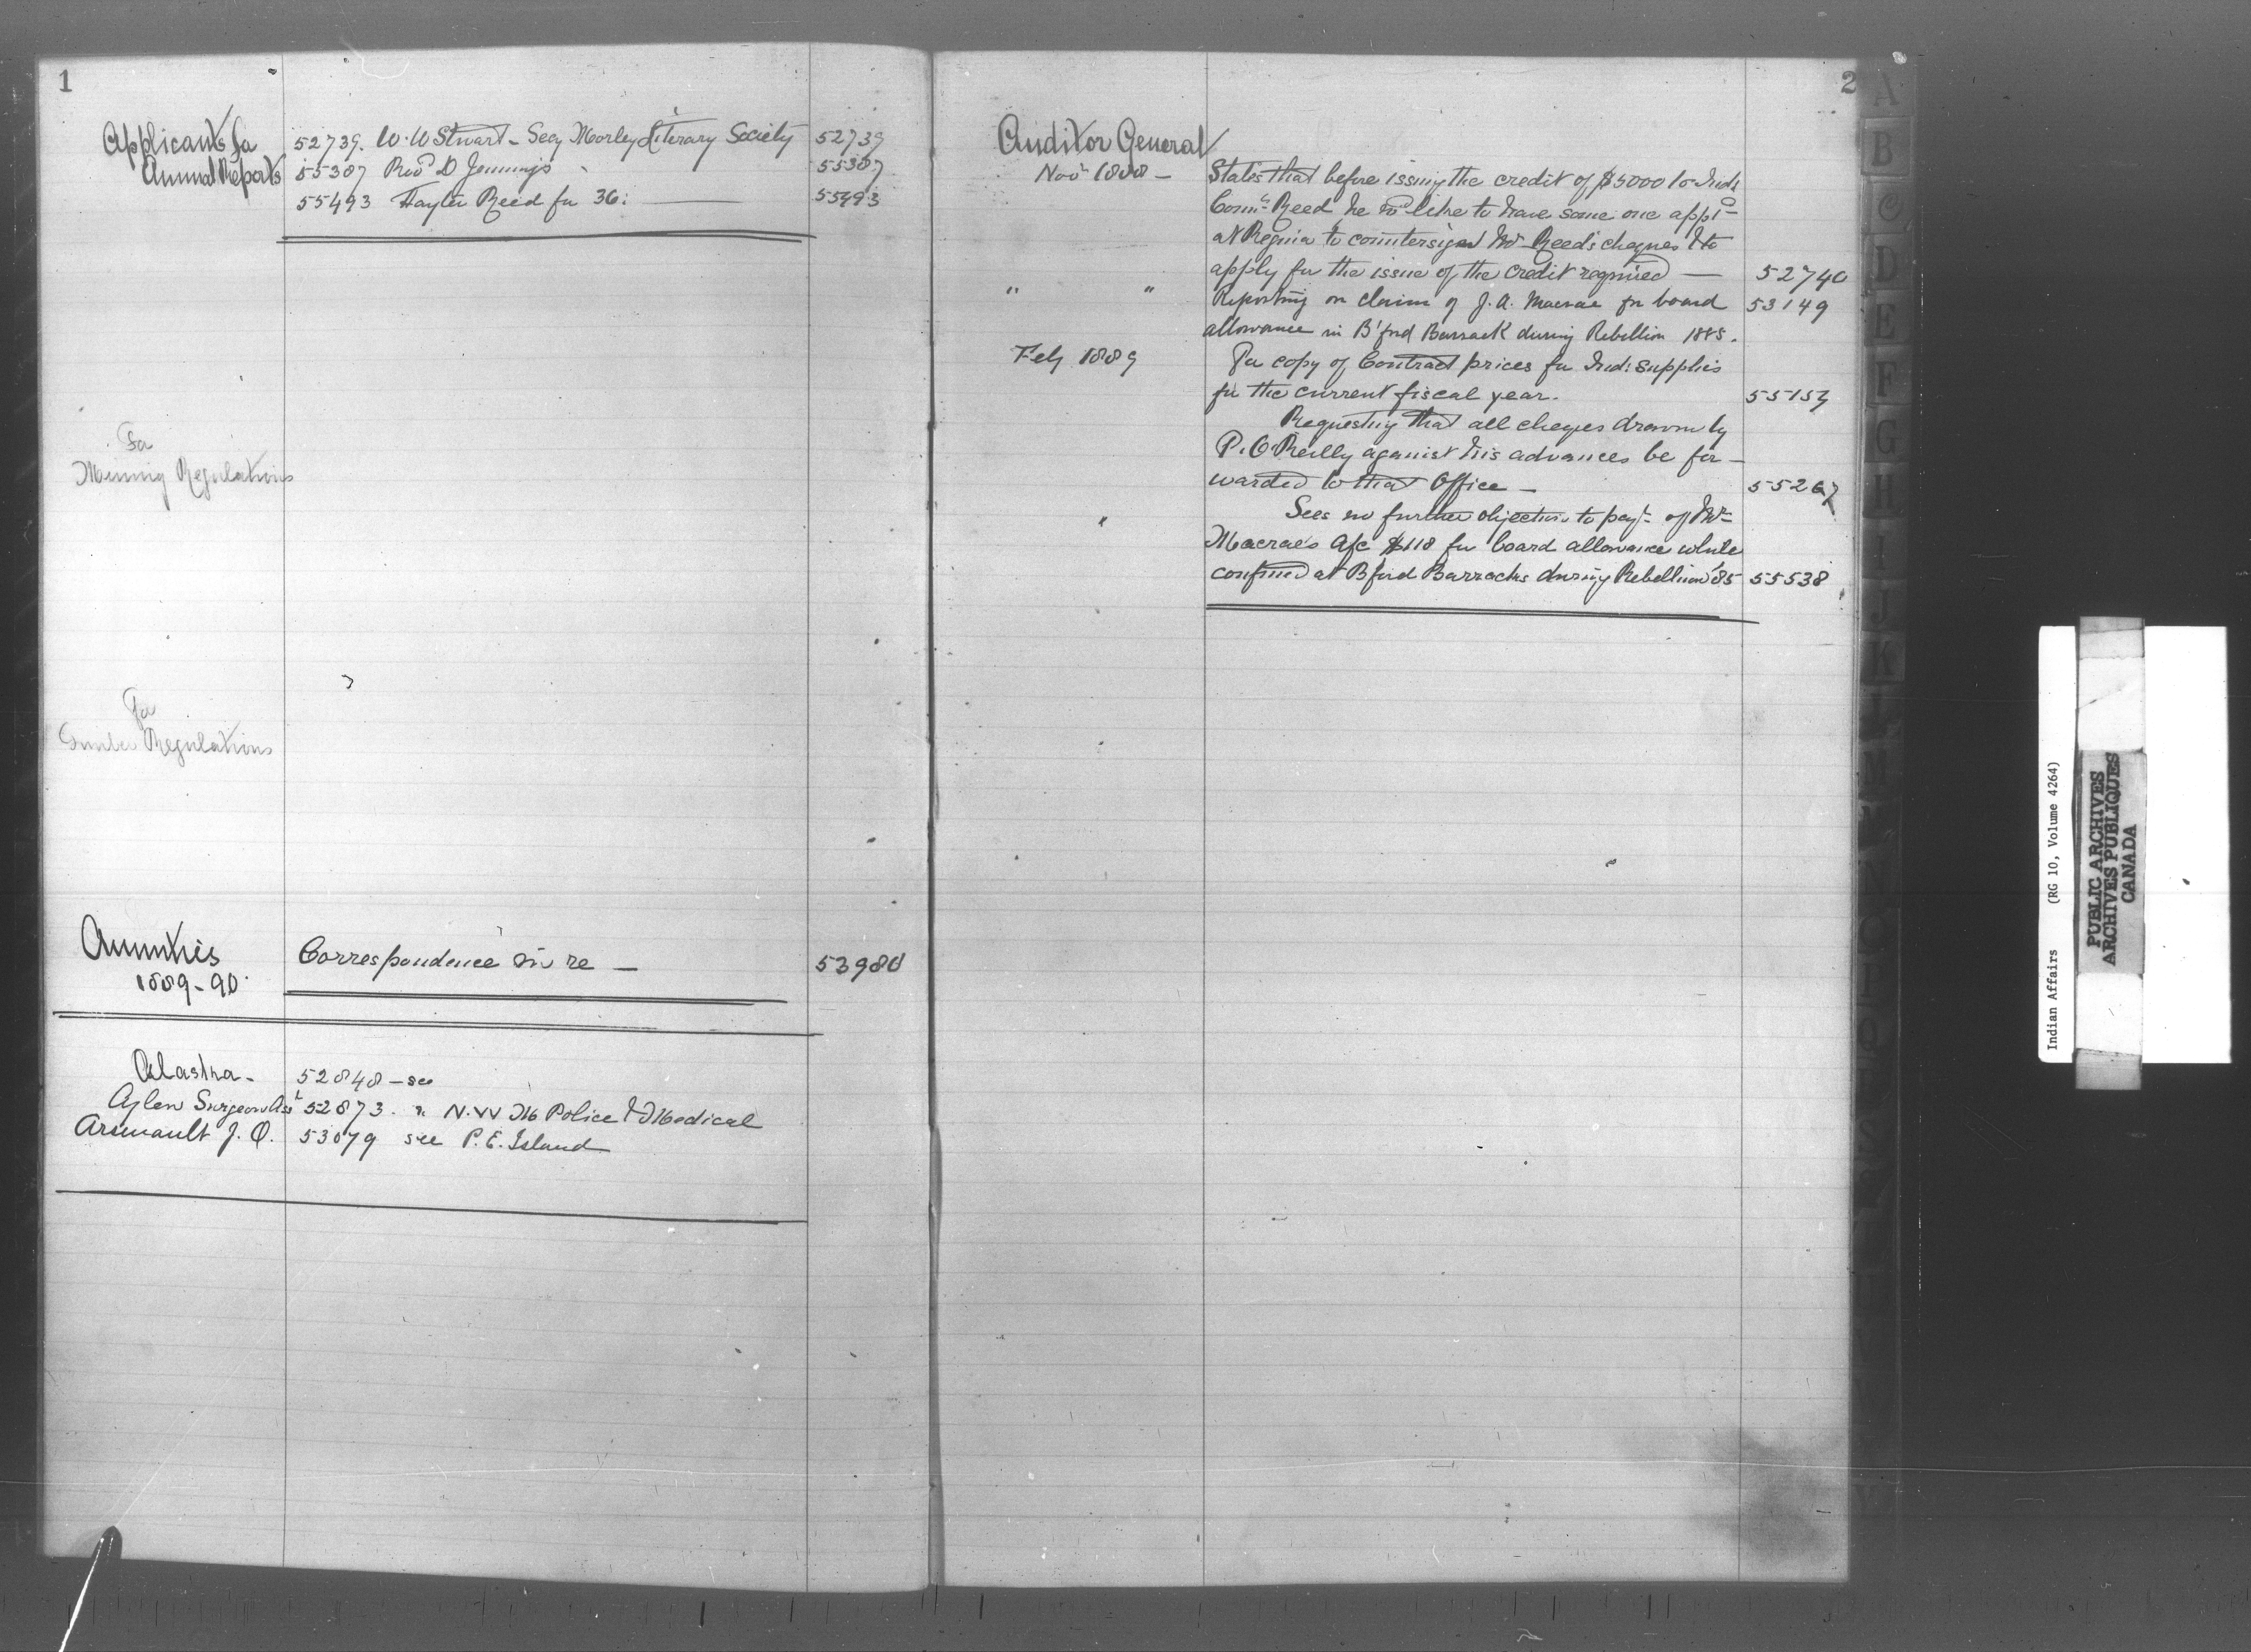 1
Applicants for
Annual Reports
52739. W. W Stuart - Secy Morley Literary Society 52739
55307 Revd D Jennings 55307
55493 Hayter Reed for 36: 55493
For
Mining Regulations
For
Timber Regulations
Annuities
1889-90.
Correspondence in re — 53980
Alaska - 52848 - see
Aylen Surgeon Asst 52873. " N.W M Police & Medical
Arsenault J. O. 53079 see P. E. Island
2
Auditor General
Nov 1888 — States that before issuing the credit of $5000 to Ind:
Commr Reed he wd like to have some one appd
at Regina to countersign Mr Reed's cheques & to
apply for the issue of the credit required — 52740
" " Reporting on claim of J. A. Macrae for board 53149
allowance in B'ford Barrack during Rebellion 1885.
Feby 1889 For copy of Contract prices for Ind: supplies
for the current fiscal year. 55157
Requesting that all cheques drawn by
P. O'Reilly against his advances be for-
warded to that Office — 55267
" Sees no further objection to payt of Mr
Macrae's a/c $118 for board allowance while
confined at B'ford Barracks during Rebellion '85 55538
A
B
C
D
E
F
G
H
I
J
K
L
M
Indian Affairs (RG 10, Volume 4264)
PUBLIC ARCHIVES
ARCHIVES PUBLIQUES
CANADA